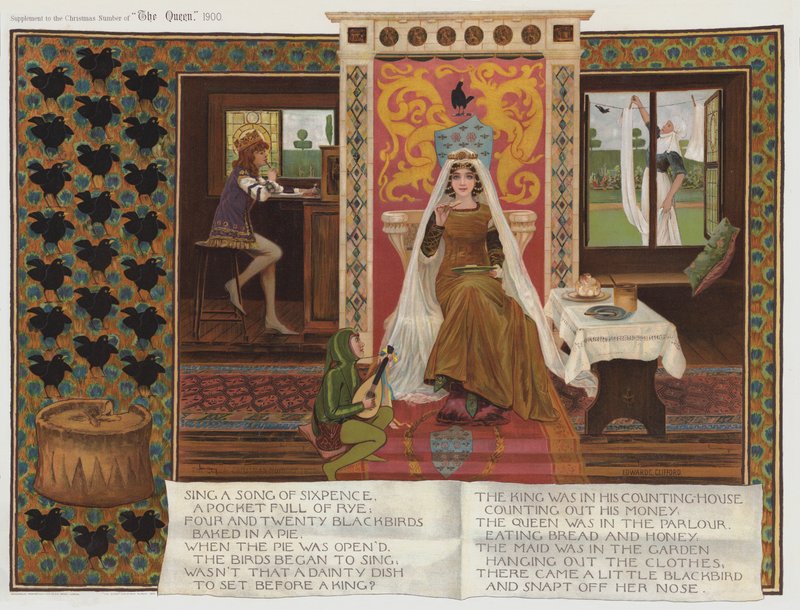 Supplement to the Christmas Number of "The Queen," 1900.
EDWARD CLIFFORD.
SING A SONG OF SIXPENCE,
A POCKET FULL OF RYE;
FOUR AND TWENTY BLACKBIRDS
BAKED IN A PIE.
WHEN THE PIE WAS OPEN'D.
THE BIRDS BEGAN TO SING;
WASN'T THAT A DAINTY DISH
TO SET BEFORE A KING?
THE KING WAS IN HIS COUNTING-HOUSE
COUNTING OUT HIS MONEY.
THE QUEEN WAS IN THE PARLOUR.
EATING BREAD AND HONEY.
THE MAID WAS IN THE GARDEN
HANGING OUT THE CLOTHES,
THERE CAME A LITTLE BLACKBIRD
AND SNAPT OFF HER NOSE.